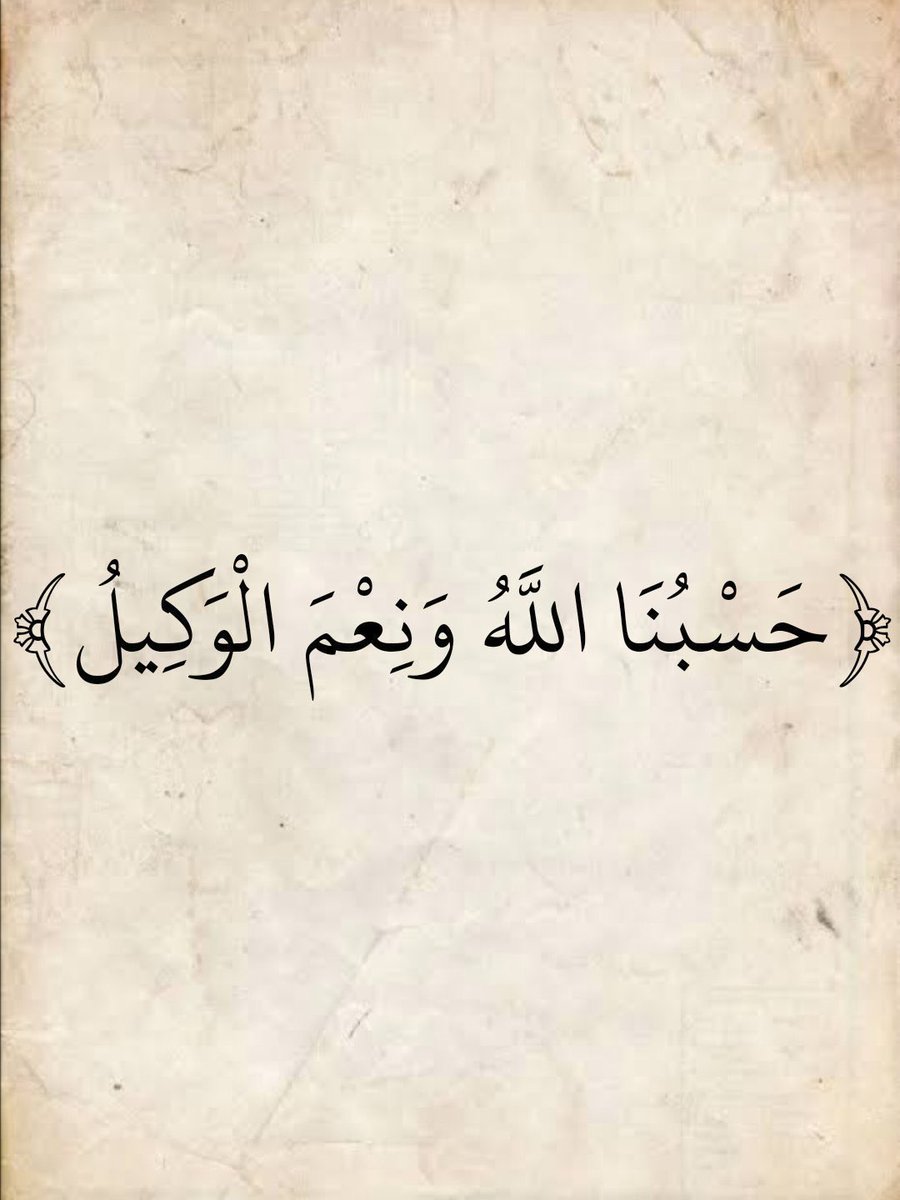 ﴿ حَسْبُنَا اللَّهُ وَنِعْمَ الْوَكِيلُ ﴾